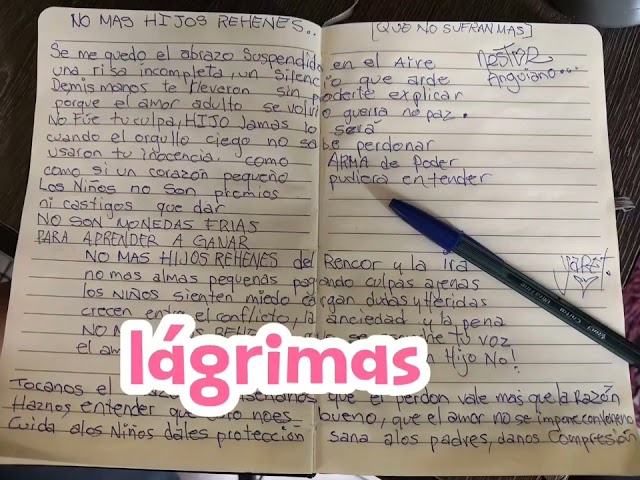 NO MAS HIJOS REHENES.. [QUE NO SUFRAN MAS]
Se me quedo el abrazo Suspendido en el Aire
una risa incompleta, un Silencio que arde
De mis manos te llevaron sin poderte explicar
porque el amor adulto se volvio guerra no paz.
No Fúe tu culpa, HIJO Jamas lo será
cuando el orgullo ciego no sabe perdonar
usaron tu inocencia. como ARMA de Poder
como si un corazón pequeño pudiera entender
Los Niños no son premios
ni castigos que dar
NO SON MONEDAS FRIAS
PARA APRENDER A GANAR
NO MAS HIJOS REHENES del Rencor y la Ira
no mas almas pequeñas pagando culpas ajenas
los NIÑOS sienten miedo cargan dudas y Heridas
crecen entre el conflicto, la anciedad y la pena
NO tu voz
el am Hijo No!
Tocanos el que el perdon vale mas que la Razón
Haznos entender que no es bueno, que el amor no se impone con veneno
Cuida a los Niños dales protección sana a los padres, danos Compresión
Nestor
Anguiano...
lágrimas